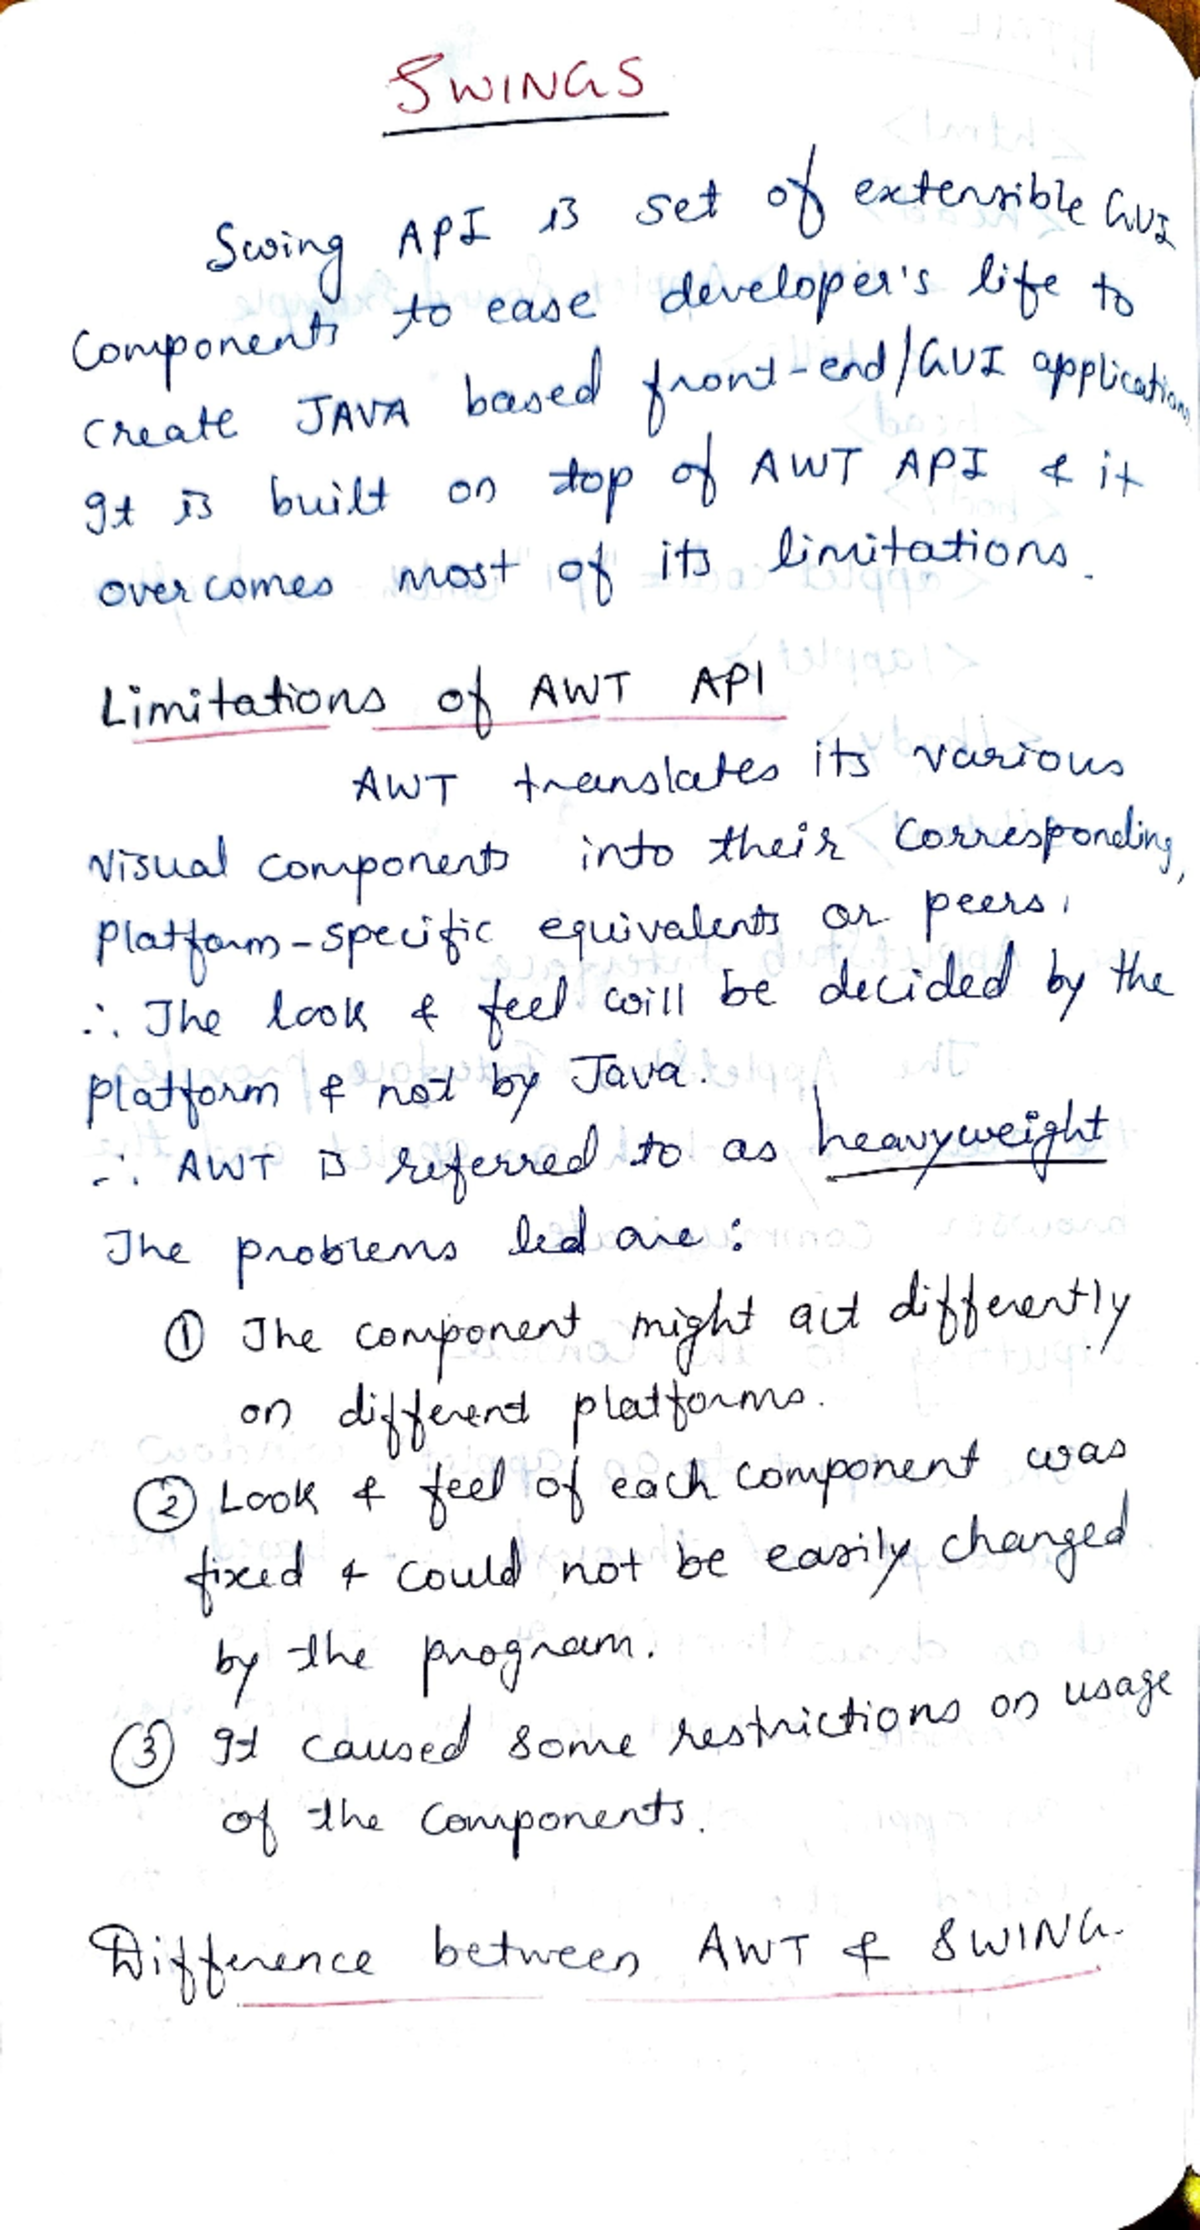 SWINGS
Swing API is set of extensible GUI
Components to ease developer's life to
create JAVA based front-end/GUI applications
It is built on top of AWT API & it
overcomes most of its limitations.
Limitations of AWT API
AWT translates its various
visual components into their corresponding,
platform-specific equivalents or peers.
∴ The look & feel will be decided by the
platform & not by Java.
∴ AWT is referred to as heavyweight
The problems led are:
① The component might act differently
on different platforms.
② Look & feel of each component was
fixed & could not be easily changed
by the program.
③ It caused some restrictions on usage
of the components.
Difference between AWT & SWING.